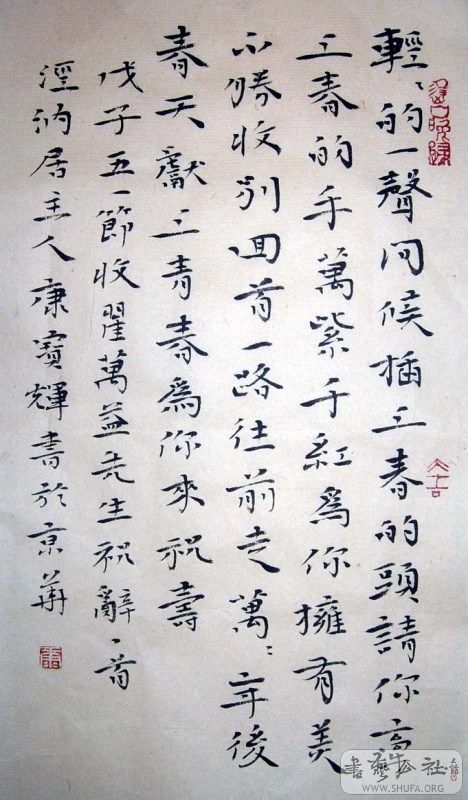 輕〻的一聲问候插上春的頭請你高
上春的手萬紫千紅爲你擁有美
不勝收别回首一路往前走萬〻年後
春天獻上青春爲你來祝壽
戊子五一節收瞿萬益先生祝辭一首
涇汭居主人康寶輝書於京華
WWW.SHUFA.ORG